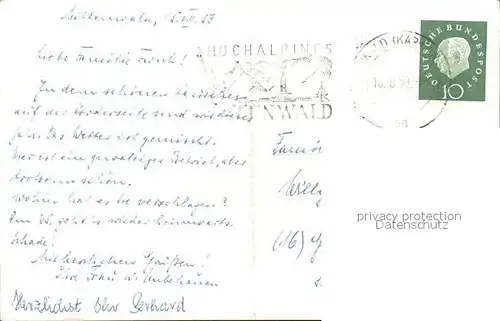 Mittenwald,
Liebe Familie Funk!
In dem schönen Häuschen
auf der Vorderseite sind wir dieses
Jahr. Das Wetter ist gemischt.
Hier ist ein gewaltiger Betrieb, aber
trotzdem schön.
Wohin hat es Sie verschlagen?
Am geht es wieder heimwärts.
Schade!
Mit herzlichen Grüßen!
Ihre Frau
Herzlichst Ihr Gerhard
HOCHALPINES
ENWALD
DEUTSCHE BUNDESPOST
10
Famil
(16)
privacy protection
Datenschutz